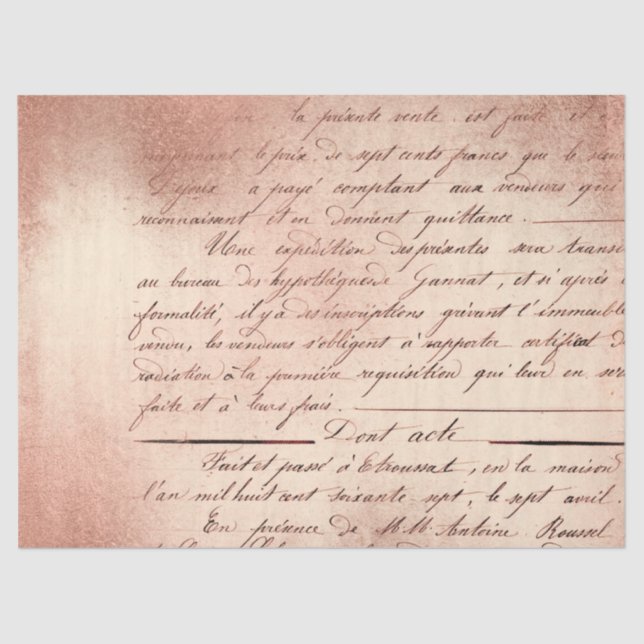 la présente vente est faite et
moyennant le prix de sept cents francs que le
Dejoux a payé comptant aux vendeurs qui
reconnaissent et en donnent quittance.
Une expédition des présentes sera
au bureau des hypothèques de Gannat, et si après
formalité, il y a des inscriptions grévant l'immeuble
vendu, les vendeurs s'obligent à rapporter certificat d
radiation à la première requisition qui leur en ser
faite et à leurs frais.
Dont acte
Fait et passé à Etroussat, en la maison
l'an mil huit cent soixante-sept, le sept avril.
En présence de M.M. Antoine Roussel